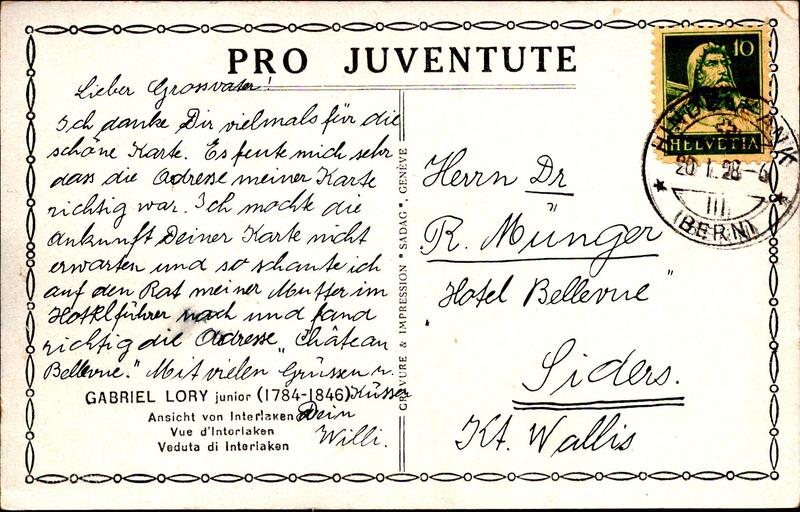 PRO JUVENTUTE
Lieber Grossvater!
Ich danke Dir vielmals für die
schöne Karte. Es feute mich sehr
dass die Adresse meiner Karte
richtig war. Ich mochte die
Ankunft Deiner Karte nicht
erwarten und so schaute ich
auf den Rat meiner Mutter im
Hotelführer nach und fand
richtig die Adresse „Château
Bellevue." Mit vielen Grüssen u.
Küssen
Dein
Willi.
GABRIEL LORY junior (1784-1846)
Ansicht von Interlaken
Vue d'Interlaken
Veduta di Interlaken
GRAVURE & IMPRESSION "SADAG", GENÈVE
10
HELVETIA
20. I. 28-6
III
(BERN)
Herrn Dr
R. Münger
„Hotel Bellevue"
Siders.
Kt. Wallis